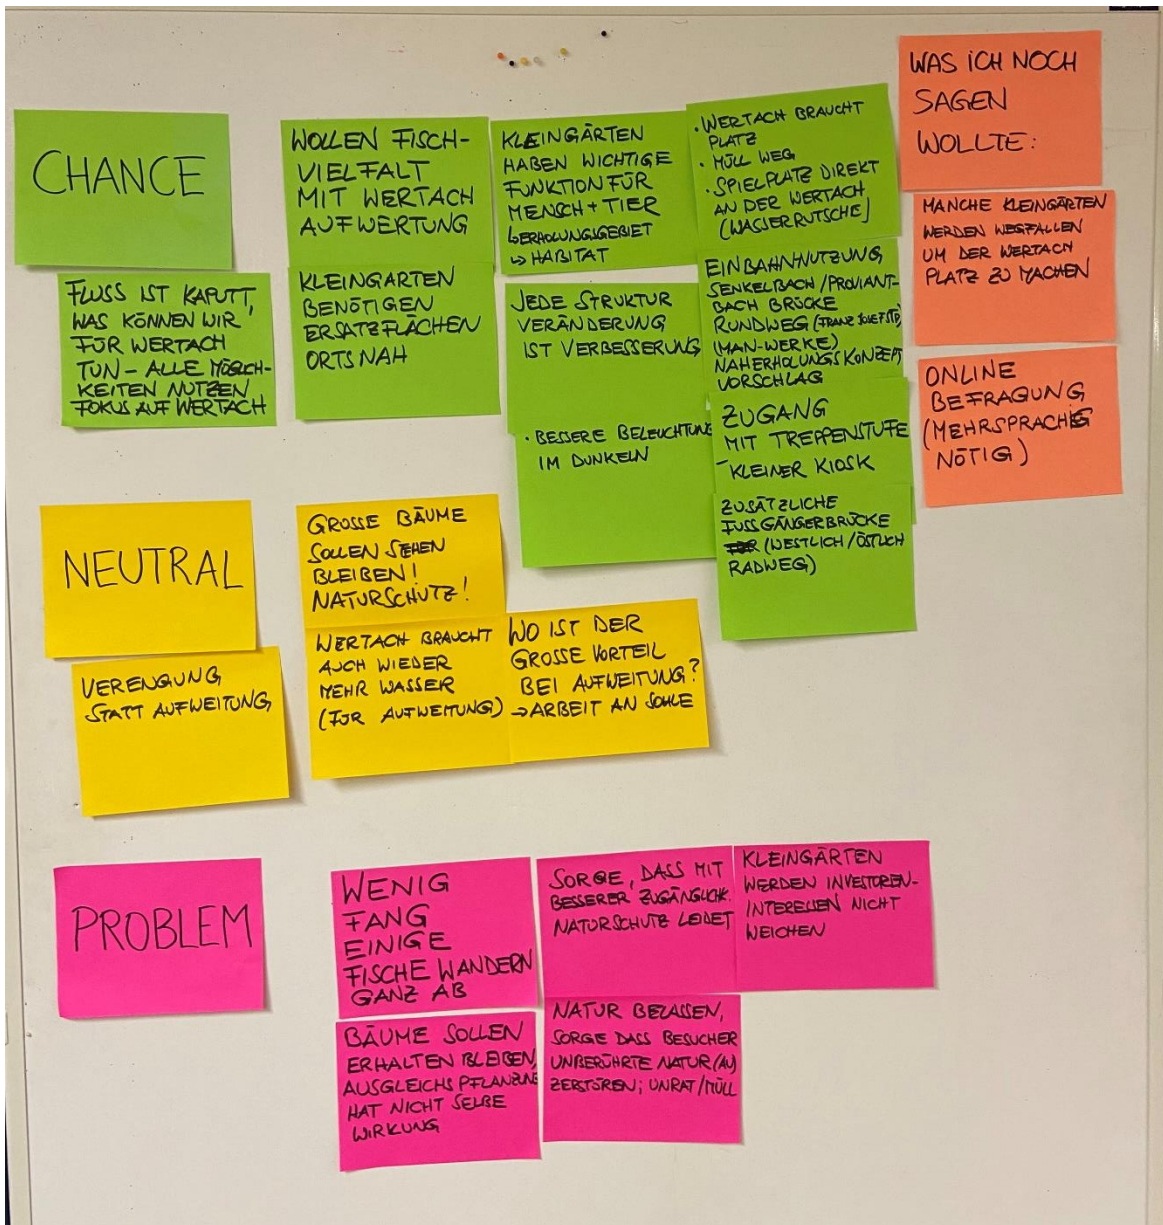 CHANCE
FLUSS IST KAPUTT,
WAS KÖNNEN WIR
FÜR WERTACH
TUN - ALLE MÖGLICH-
KEITEN NUTZEN
FOKUS AUF WERTACH
WOLLEN FISCH-
VIELFALT
MIT WERTACH
AUFWERTUNG
KLEINGÄRTEN
BENÖTIGEN
ERSATZFLÄCHEN
ORTSNAH
KLEINGÄRTEN
HABEN WICHTIGE
FUNKTION FÜR
MENSCH + TIER
↳ ERHOLUNGSGEBIET
↳ HABITAT
JEDE STRUKTUR
VERÄNDERUNG
IST VERBESSERUNG
• BESSERE BELEUCHTUNG
IM DUNKELN
• WERTACH BRAUCHT
PLATZ
• MÜLL WEG
• SPIELPLATZ DIREKT
AN DER WERTACH
(WASSERRUTSCHE)
EINBAHNNUTZUNG
SENKELBACH / PROVIANT-
BACH BRÜCKE
RUNDWEG (FRANZ JOSEF STR)
(MAN-WERKE)
NAHERHOLUNGSKONZEPT
VORSCHLAG
ZUGANG
MIT TREPPENSTUFE
- KLEINER KIOSK
ZUSÄTZLICHE
FUSSGÄNGERBRÜCKE
(WESTLICH / ÖSTLICH
RADWEG)
WAS ICH NOCH
SAGEN
WOLLTE:
MANCHE KLEINGÄRTEN
WERDEN WEGFALLEN
UM DER WERTACH
PLATZ ZU MACHEN
ONLINE
BEFRAGUNG
(MEHRSPRACHIG
NÖTIG)
NEUTRAL
VERENGUNG
STATT AUFWEITUNG
GROSSE BÄUME
SOLLEN STEHEN
BLEIBEN!
NATURSCHUTZ!
WERTACH BRAUCHT
AUCH WIEDER
MEHR WASSER
(FÜR AUFWEITUNG)
WO IST DER
GROSSE VORTEIL
BEI AUFWEITUNG?
→ ARBEIT AN SOHLE
PROBLEM
WENIG
FANG
EINIGE
FISCHE WANDERN
GANZ AB
BÄUME SOLLEN
ERHALTEN BLEIBEN,
AUSGLEICHSPFLANZUNG
HAT NICHT SELBE
WIRKUNG
SORGE, DASS MIT
BESSERER ZUGÄNGLICHK.
NATURSCHUTZ LEIDET
NATUR BELASSEN,
SORGE DASS BESUCHER
UNBERÜHRTE NATUR (AU)
ZERSTÖREN; UNRAT/MÜLL
KLEINGÄRTEN
WERDEN INVESTOREN-
INTERESSEN NICHT
WEICHEN